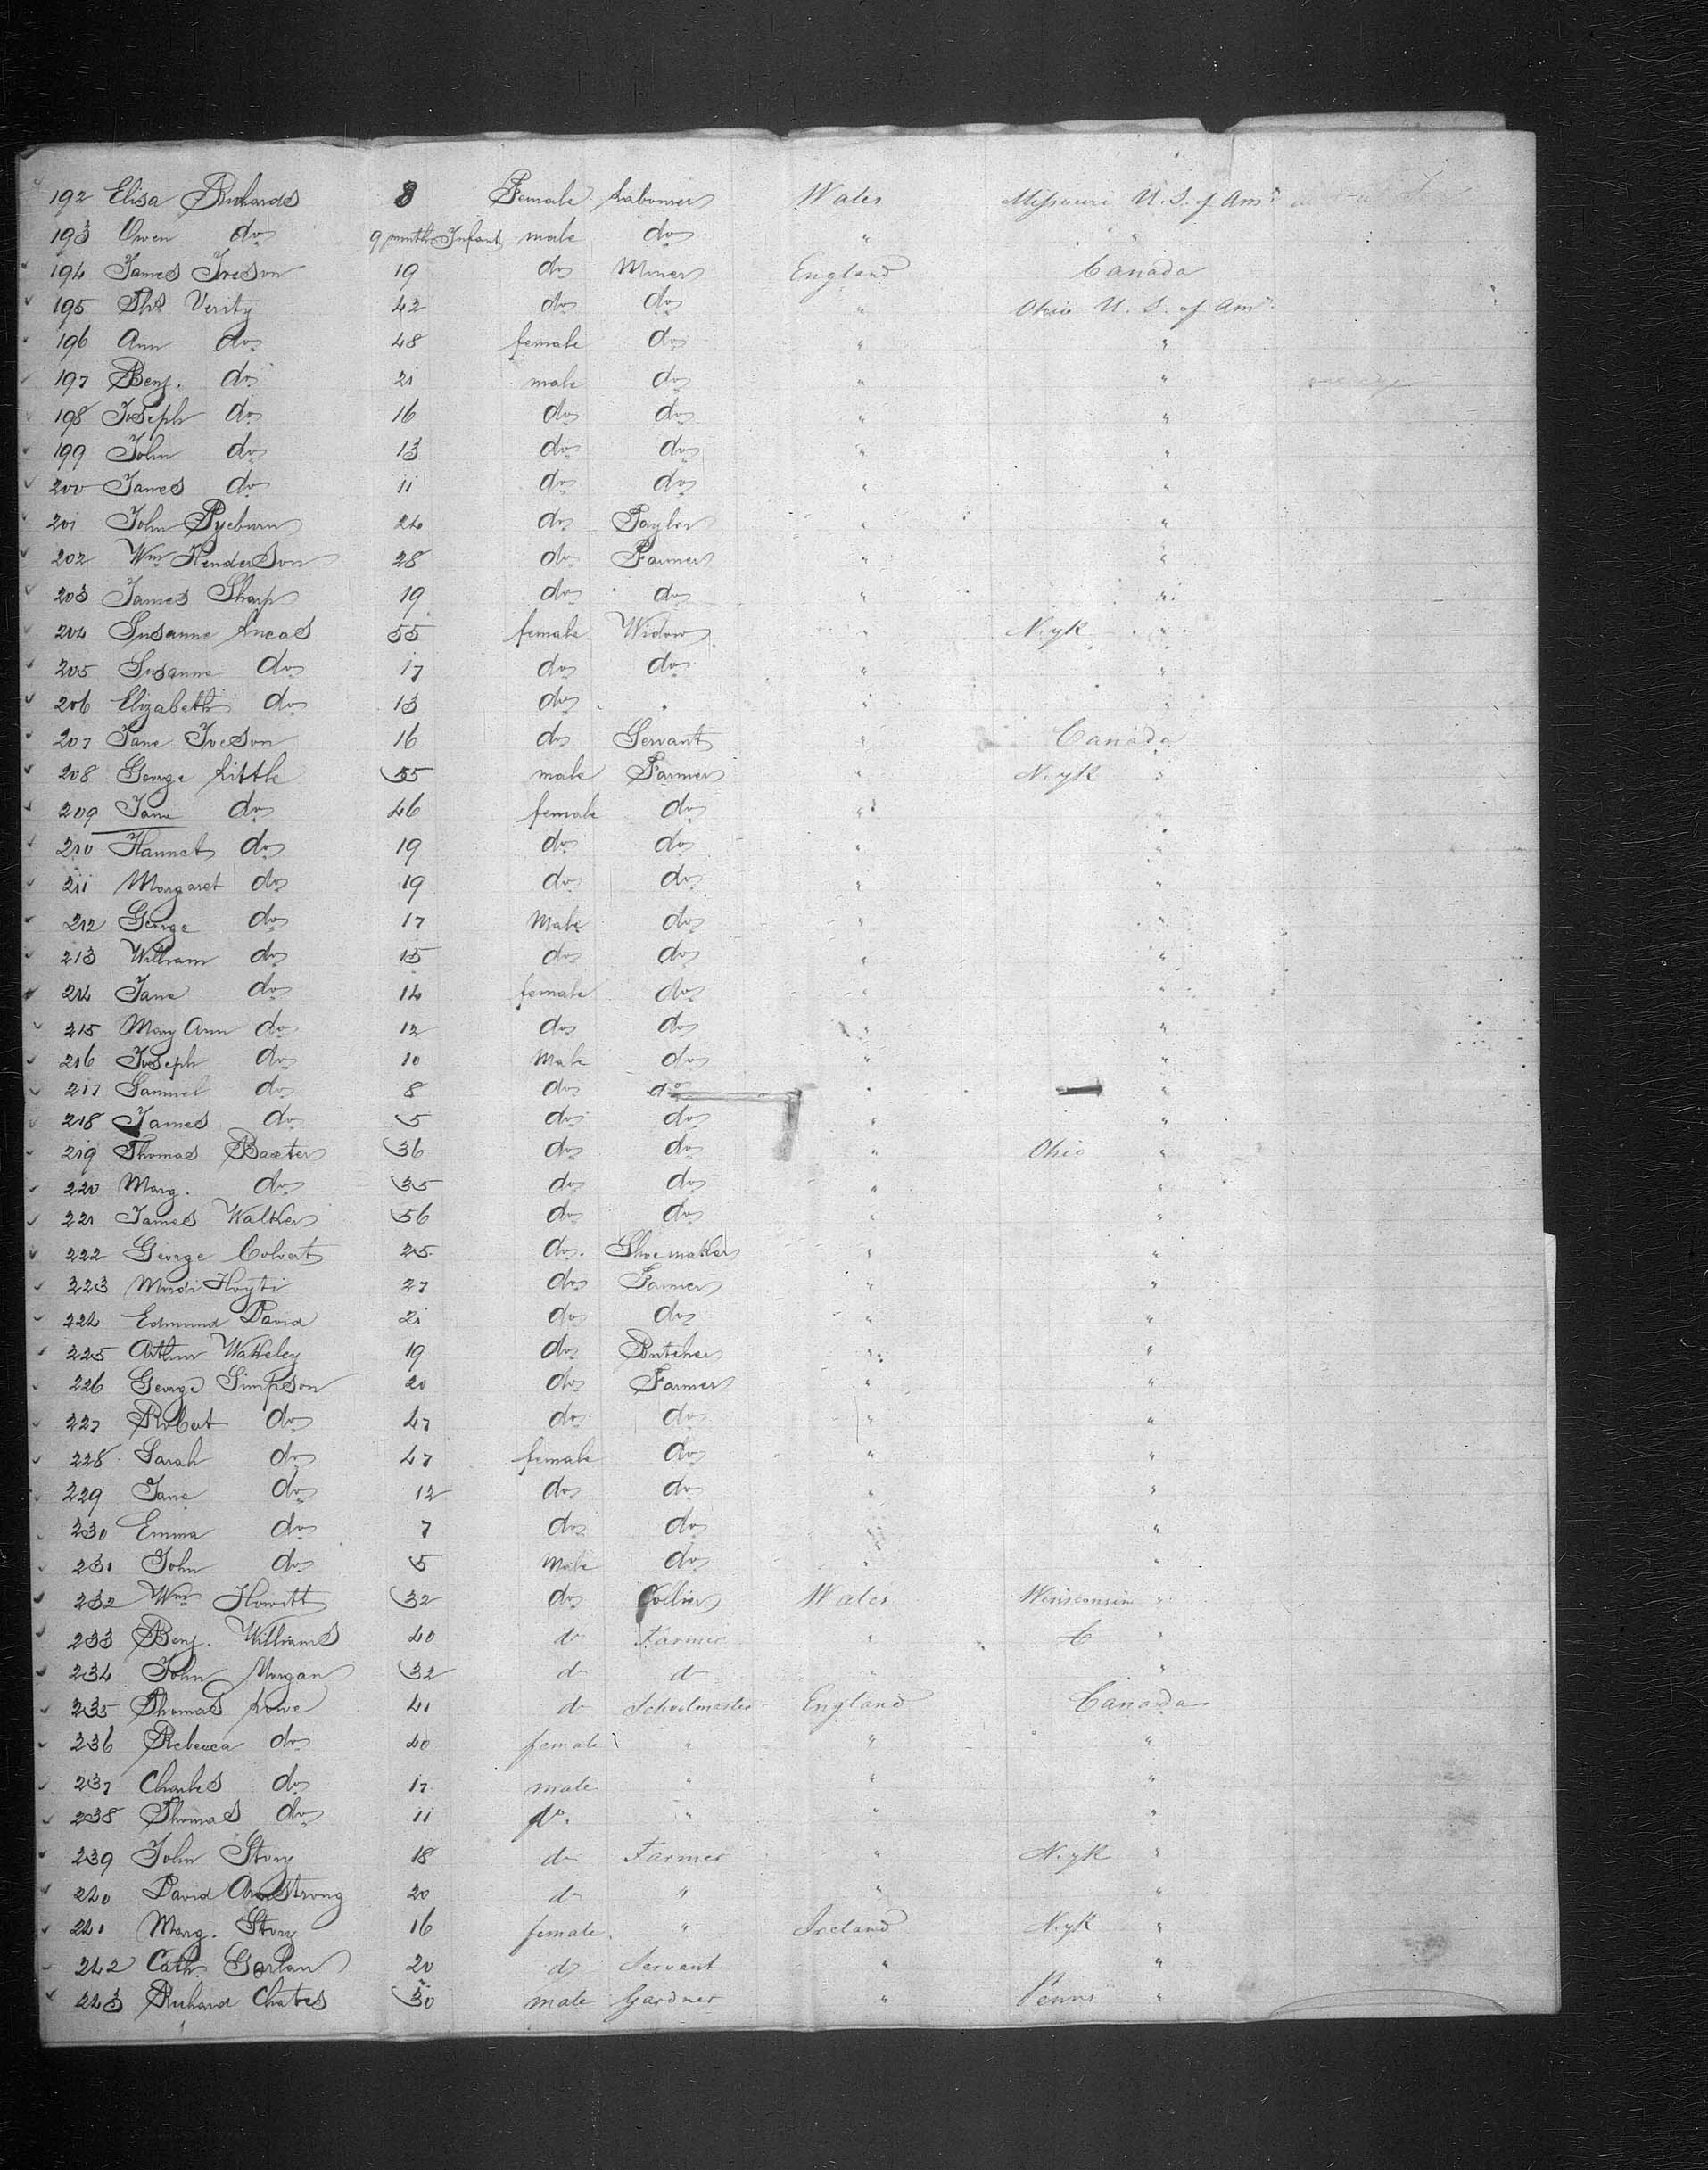 192 Elisa Richards 8 Female Labourer Wales Missouri U. S. of Am
193 Owen do 9 months Infant male do " "
194 James Iveson 19 do Miner England Canada
195 Thos Verity 42 do do " Ohio U. S. of Am
196 Ann do 48 female do " "
197 Benj. do 21 male do " "
198 Joseph do 16 do do " "
199 John do 13 do do " "
200 James do 11 do do " "
201 John Ryeburn 24 do Taylor " "
202 Wm Henderson 28 do Farmer " "
203 James Sharp 19 do do " "
204 Susanne Lucas 55 female Widow " N.yk "
205 Susanne do 17 do do " "
206 Elizabeth do 13 do " "
207 Jane Iveson 16 do Servant " Canada
208 George Little 55 male Farmer " N.yk "
209 Jane do 46 female do " "
210 Hannet do 19 do do " "
211 Margaret do 19 do do " "
212 George do 17 Male do " "
213 William do 15 do do " "
214 Jane do 14 female do " "
215 Mary Ann do 12 do do " "
216 Joseph do 10 Male do " "
217 Samuel do 8 do do " "
218 James do 5 do do " "
219 Thomas Baxter 36 do do " Ohio "
220 Marg. do 35 do do " "
221 James Walker 56 do do " "
222 George Colvert 25 do. Shoemaker " "
223 27 do Farmer " "
224 Edmund David 21 do do " "
225 Arthur Wakeley 19 do Butcher " "
226 George Simpson 20 do Farmer " "
227 Robert do 47 do do " "
228 Sarah do 47 female do " "
229 Jane do 12 do do " "
230 Emma do 7 do do " "
231 John do 5 Male do " "
232 Wm Howitt 32 do Collier Wales Winsconsin "
233 Benj. Williams 40 do Farmer " "
234 John Morgan 32 do do " "
235 Thomas Lowe 41 do Schoolmaster England Canada
236 Rebecca do 40 female " " "
237 Charles do 17 male " " "
238 Thomas do 11 do. " " "
239 John Story 18 do Farmer " N.yk "
240 David Armstrong 20 do " " "
241 Marg. Story 16 female " Ireland N.yk "
242 Cath. Garlan 20 do Servant " "
243 Richard Chates 30 male Gardner " Penns "